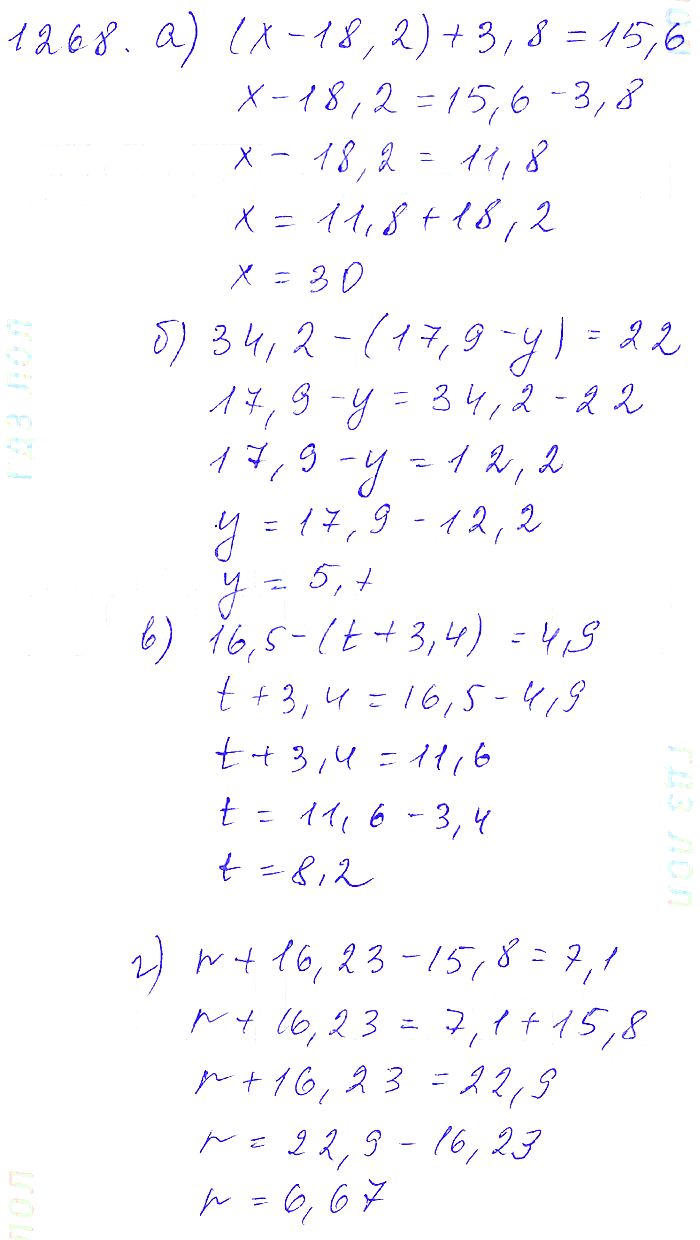 1268. а) (x-18,2)+3,8=15,6
x-18,2=15,6-3,8
x-18,2=11,8
x=11,8+18,2
x=30
б) 34,2-(17,9-y)=22
17,9-y=34,2-22
17,9-y=12,2
y=17,9-12,2
y=5,7
в) 16,5-(t+3,4)=4,9
t+3,4=16,5-4,9
t+3,4=11,6
t=11,6-3,4
t=8,2
г) r+16,23-15,8=7,1
r+16,23=7,1+15,8
r+16,23=22,9
r=22,9-16,23
r=6,67